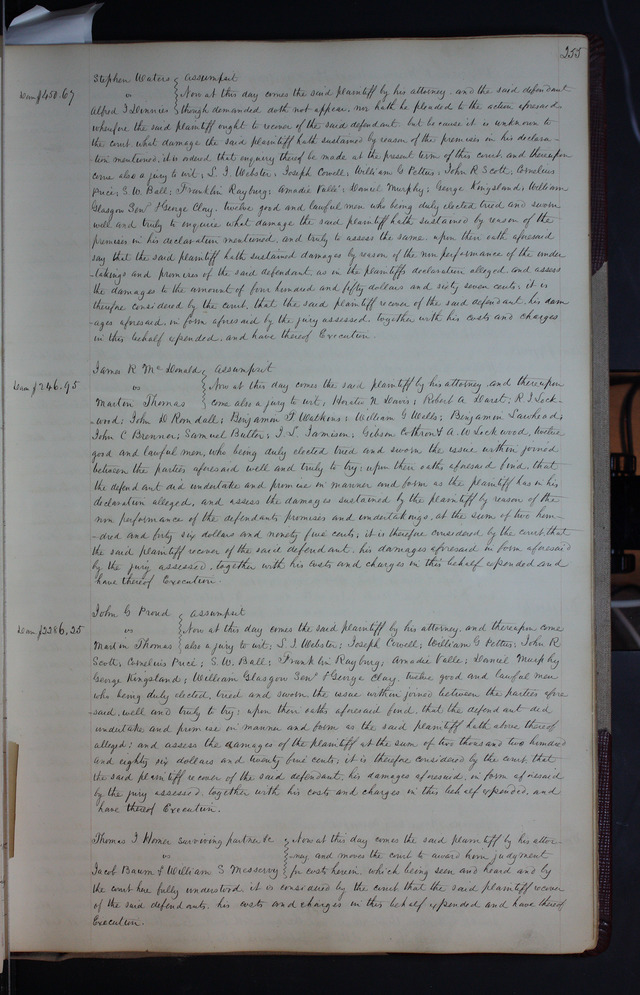 255
Stephen Waters } Assumpsit
Dam $450.67 vs } Now at this day comes the said plaintiff by his attorney, and the said defendant
Alfred J } though demanded doth not appear, nor hath he pleaded to the action aforesaid
wherefore the said plaintiff ought to recover of the said defendant. but because it is unknown to
the court what damage the said plaintiff hath sustained by reason of the premises in his declara-
tion mentioned, it is ordered that enquiry thereof be made at the present term of this court. and thereupon
come also a jury to wit; S. J. Webster; Joseph Cowell; William G Pettus; John R Scott, Cornelius
Price; S. W. Ball; Franklin Rayburg; Amadie Valle; Daniel Murphy; George Kingsland; William
Glasgow Senr & George Clay. twelve good and lawful men who being duly elected tried and sworn
well and truly to enquire what damage the said plaintiff hath sustained by reason of the
premises in his declaration mentioned, and truly to assess the same. upon their oath aforesaid
say that the said plaintiff hath sustained damages by reason of the non performance of the under
-takings and promises of the said defendant, as in the plaintiffs declaration alleged. and assess
the damages to the amount of four hundred and fifty dollars and sixty seven cents. it is
therefore considered by the court, that the said plaintiff recover of the said defendant, his dam
ages aforesaid, in form aforesaid by the jury assessed, together with his costs and charges
in this behalf expended, and have thereof Execution.
James R McDonald } Assumpsit
Dam $246.95 vs } Now at this day comes the said plaintiff by his attorney, and thereupon
Martin Thomas } come also a jury to wit; Horatio N. Davis; Robert A. R. J Lock-
-wood; John D Randall; Benjamin F Watkins; William G Wells; Benjamin Lawhead;
John C Brenner; Samuel Butler; J. S. Jamison; Gibson & A. W. Lockwood, twelve
good and lawful men, who being duly elected tried and sworn the issue within joined
between the parties aforesaid well and truly to try; upon their oaths aforesaid find, that
the defendant did undertake and promise in manner and form as the plaintiff has in his
declaration alleged, and assess the damages sustained by the plaintiff by reason of the
non performance of the defendants promises and undertakings, at the sum of two hun-
-dred and forty six dollars and ninety five cents; it is therefore considered by the court, that
the said plaintiff recover of the said defendant. his damages aforesaid in form aforesaid
by the jury assessed, together with his costs and charges in this behalf expended and
have thereof Execution.
John G Proud } Assumpsit
Dam $2286.25 vs } Now at this day comes the said plaintiff by his attorney. and thereupon come
Martin Thomas } also a jury to wit; S. J. Webster; Joseph Cowell; William G Pettus; John R
Scott, Cornelius Price; S. W. Ball; Franklin Rayburg; Amadie Valle; Daniel Murphy
George Kingsland; William Glasgow Senr & George Clay. twelve good and lawful men
who being duly elected, tried and sworn the issue within joined between the parties afore
-said, well and truly to try; upon their oaths aforesaid find, that the defendant did
undertake and promise in manner and form as the said plaintiff hath above thereof
alleged; and assess the damages of the plaintiff at the sum of two thousand two hundred
and eighty six dollars and twenty five cents; it is therefore considered by the court, that
the said plaintiff recover of the said defendant, his damages aforesaid, in form aforesaid
by the jury assessed, together with his costs and charges in this behalf expended, and
have thereof Execution.
Thomas J Homer surviving partner &c } Now at this day comes the said plaintiff by his attor-
vs } ney and moves the court to award him judgment
Jacob Baum & William S Messervy } for costs herein, which being seen and heard and by
the court here fully understood it is considered by the court that the said plaintiff recover
of the said defendants, his costs and charges in this behalf expended and have thereof
Execution.